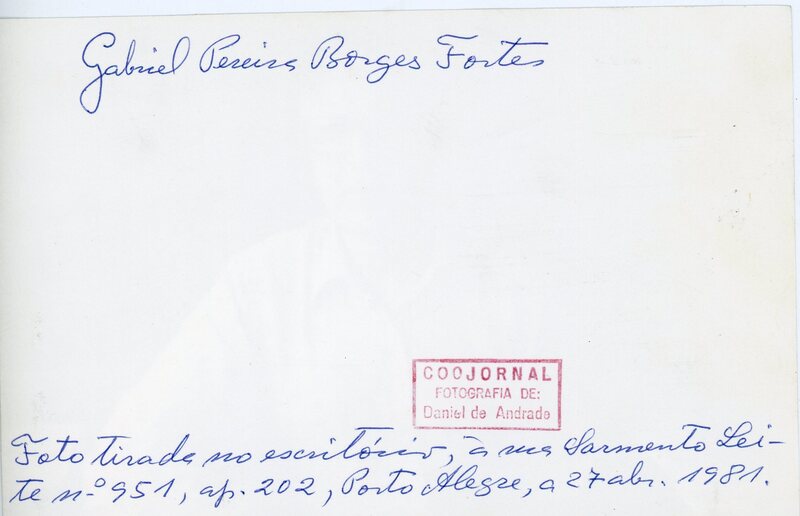 Gabriel Pereira Borges Fortes
COOJORNAL
FOTOGRAFIA DE:
Daniel de Andrade
Foto tirada no escritório, à rua Sarmento Lei-
te n.º 951, ap. 202, Porto Alegre, a 27 abr. 1981.